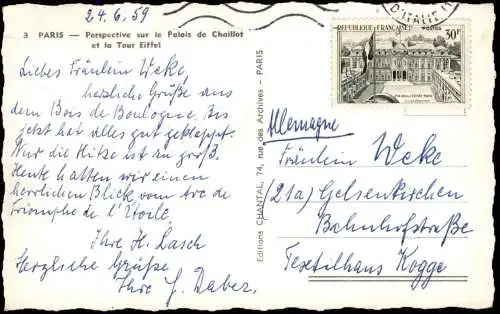 24.6.59
3 PARIS — Perspective sur le Palais de Chaillot
et la Tour Eiffel
Liebes Fräulein Weke,
herzliche Grüße aus
dem Bois de Boulogne. Bis
jetzt hat alles gut geklappt.
Nur die Hitze ist zu groß.
Heute hatten wir einen
herrlichen Blick vom Arc de
Triomphe de l'Étoile.
Ihre H. Lasch
Herzliche Grüße
Ihre J. Daber.
Editions CHANTAL, 74, rue des Archives - PARIS
D'ITALIE
REPUBLIQUE FRANÇAISE
POSTES
30F
Allemagne
Fräulein Weke
(21a) Gelsenkirchen
Bahnhofstraße
Textilhaus Kogge